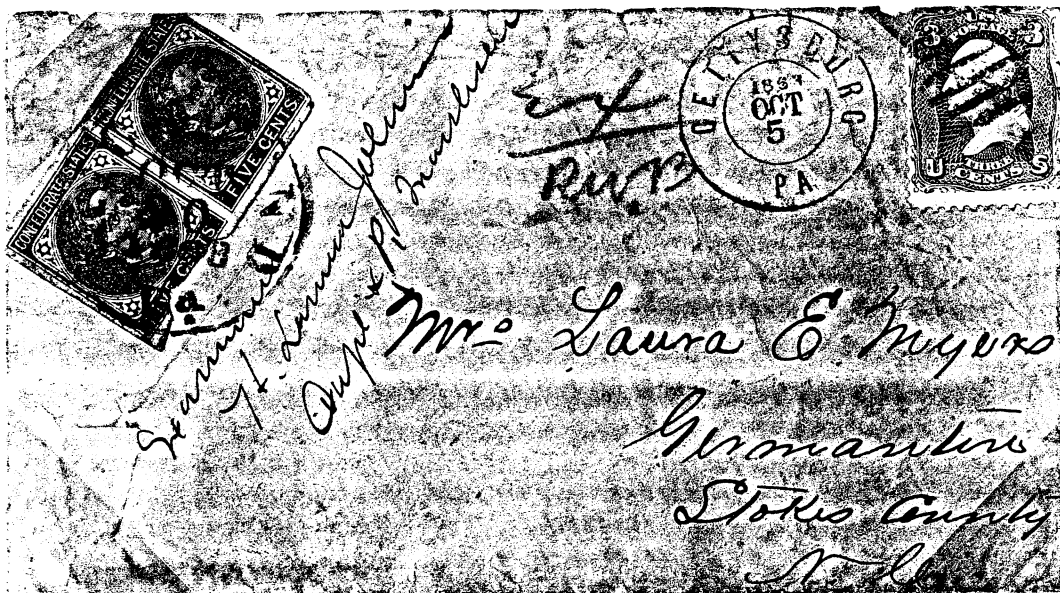 CONFEDERATE STATES
FIVE CENTS
CONFEDERATE STATES
CENTS
Examined
H.
Capt & P. Marshal
Ex
RWB
GETTYSBURG
1863
OCT
5
PA
U.S.
POSTAGE
3 3
THREE
U CENTS S
Mrs Laura E Myers
Germanton
Stokes County
N. C.